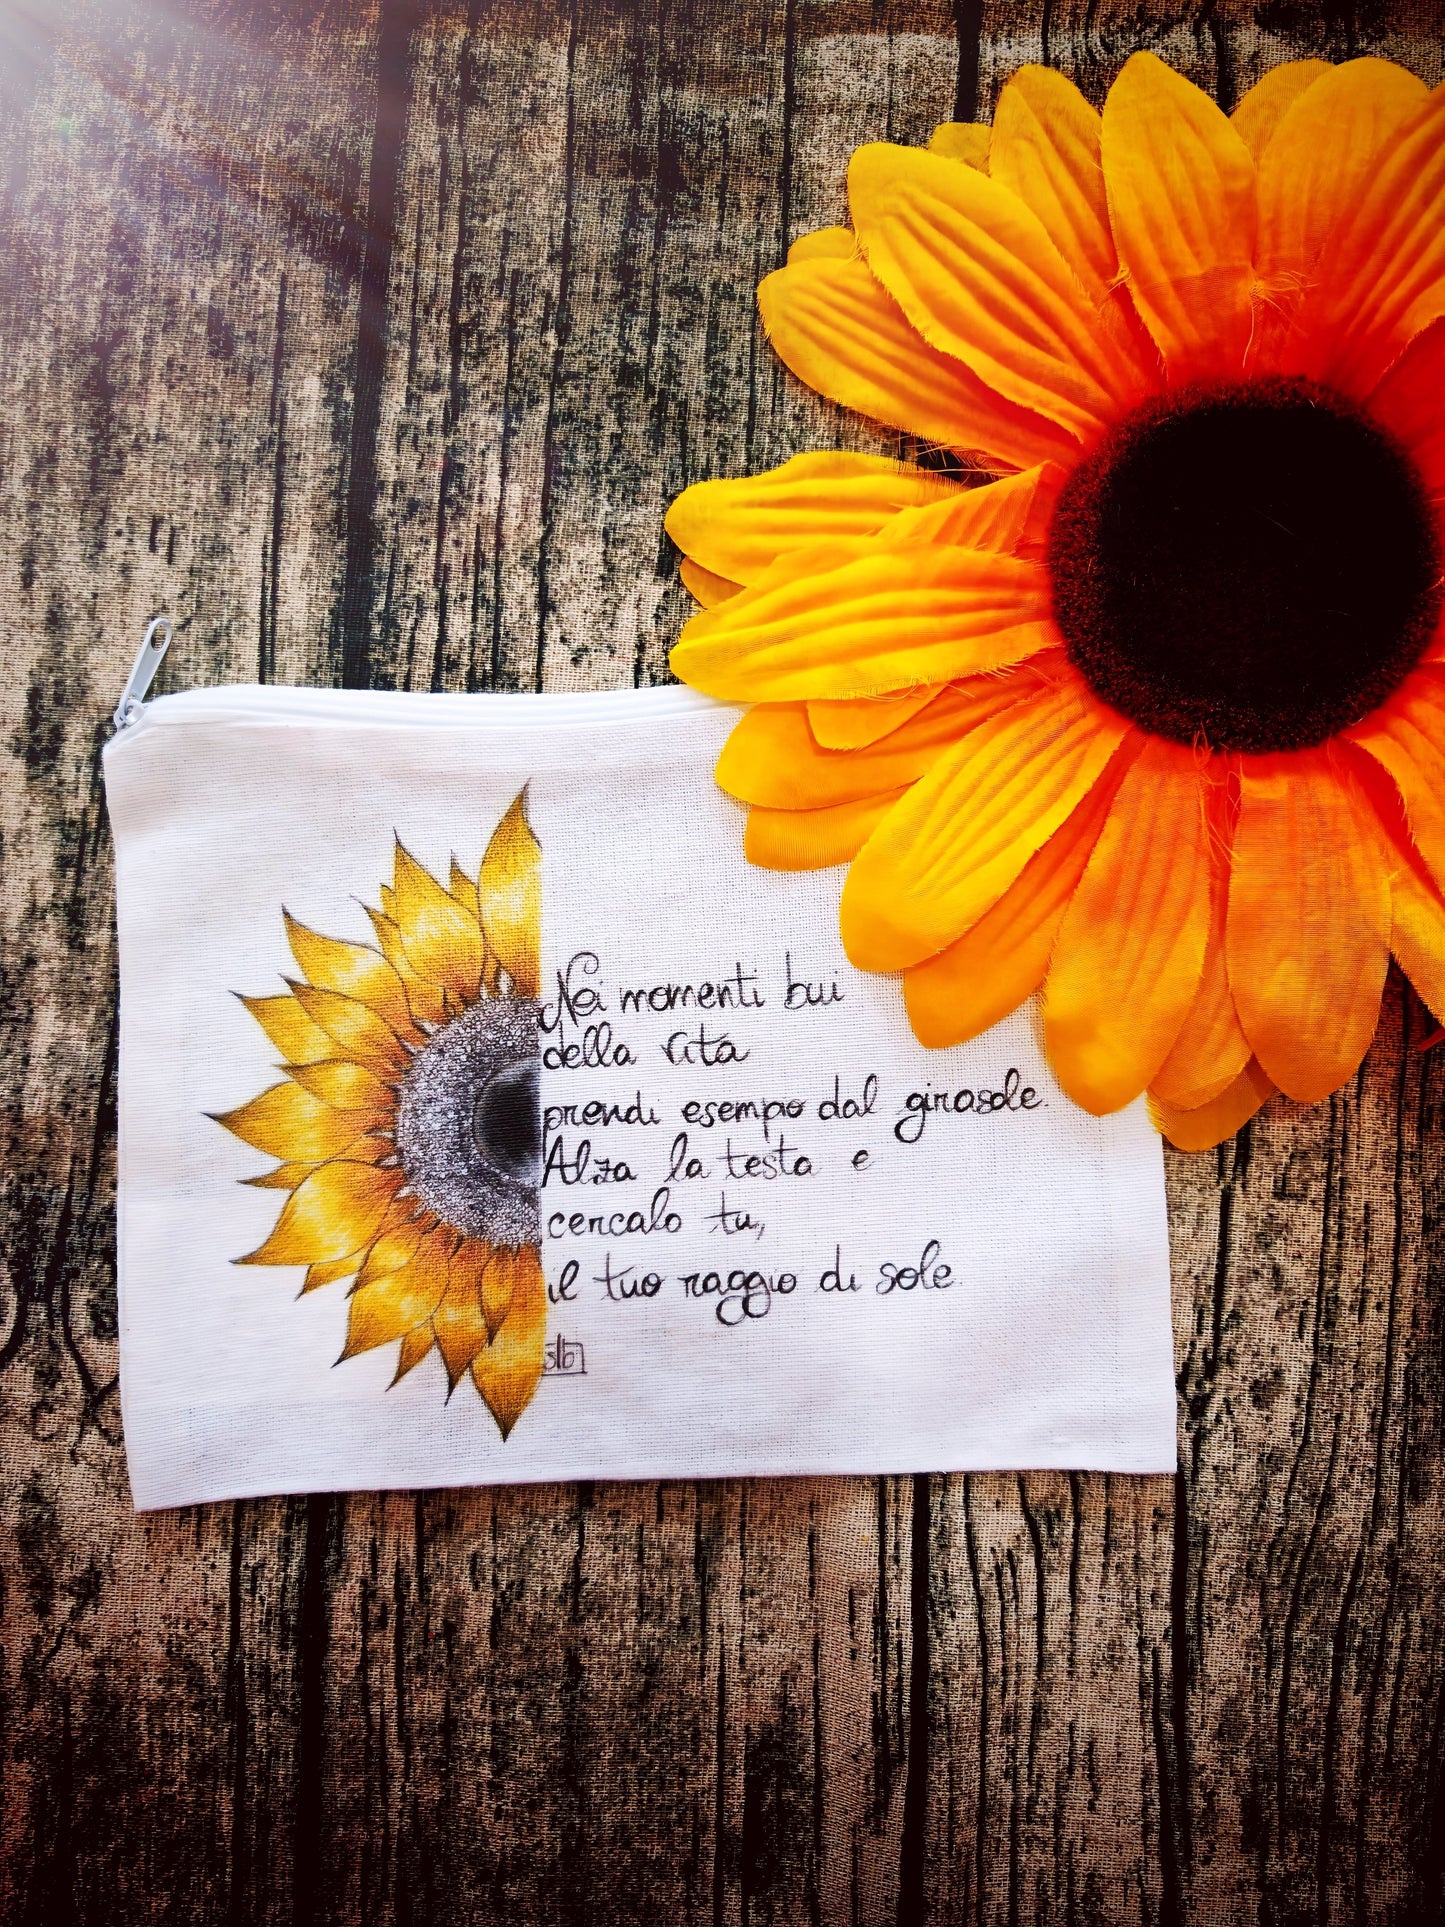 Nei momenti bui
della vita
prendi esempio dal girasole.
Alza la testa e
cercalo tu,
il tuo raggio di sole.
slb